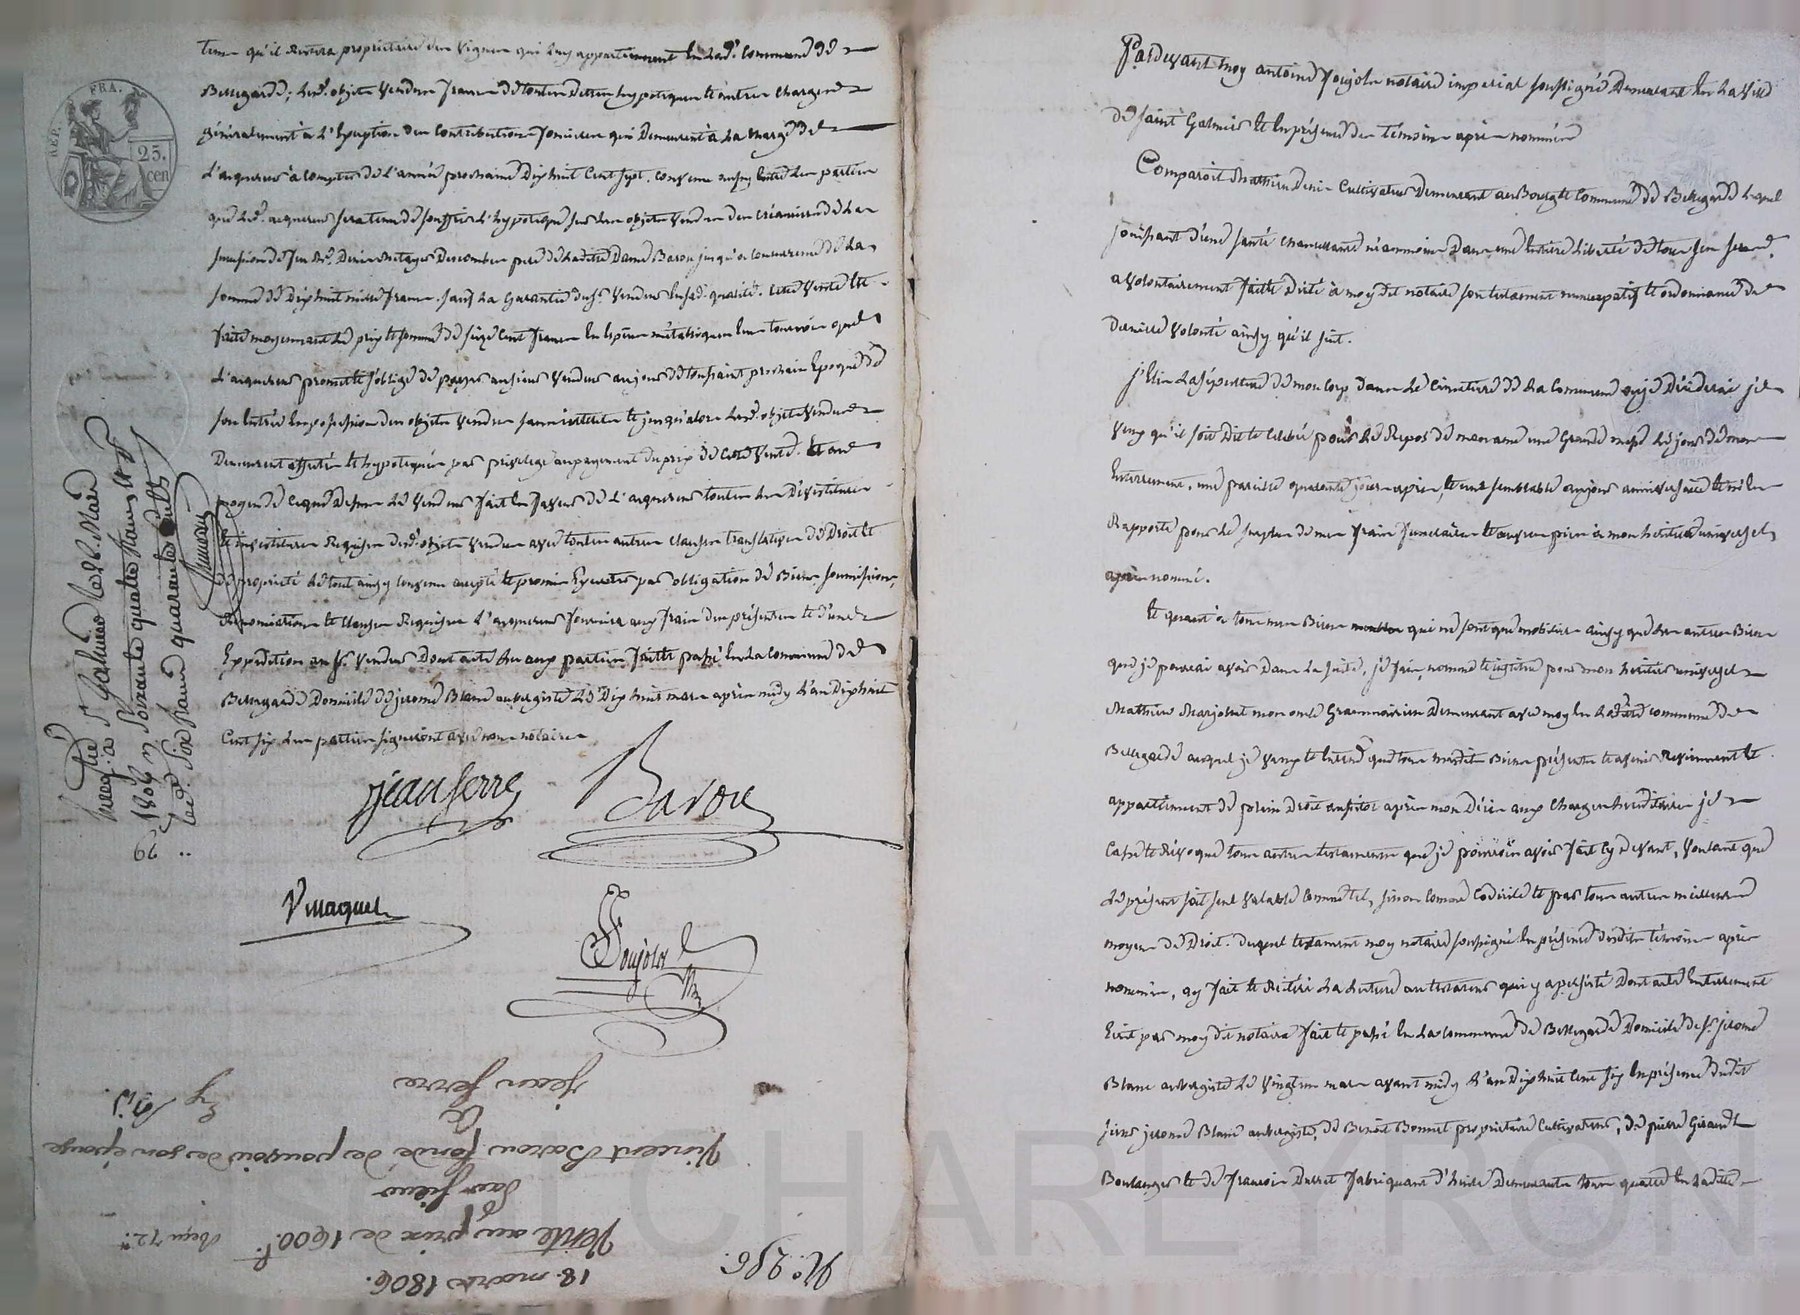 tems qu'il Restera proprietaire des vignes qui luy appartiennent en lad.e Commune de
Bellegarde; lesd. objets vendus francs de toutes dettes hypoteques et autres charges
généralement à l'exception des Contributions foncieres qui Demeurent à la charge de
l'acquereur à compter de l'année prochaine Dix huit Cent sept. Convenu aussy entre les parties
que led. acquereur sera tenu de souffrir l'hypoteque sur les objets vendus des créanciers de la
succession de feu Denis pere de ladite Dame Baron jusqu'a Concurrence de la
somme de Dix huit mille francs. sauf la Garantie dud. S.r Vendeur en sad. qualité. Cette vente est
faite moyennant le prix et somme de seize Cent francs en especes métalliques
l'acquereur promet et s'oblige de payer au sieur Vendeur au jour de toussaint prochain Epoque de
son entrée en possession des objets vendus sans interet et jusqu'alors lesd. objets vendus
Demeurent affectés et hypotequés par privilege au payement du prix de Cette vente. Et au
moyen de Ce que Dessus le vendeur fait en faveur de l'acquereur toutes les Dévestitures
et investitures Requises desd. objets vendus avec toutes autres Clauses translatives de Droit et
de propriété le tout ainsy Convenu accepté et promis Executer par obligation de Biens soumissions,
Renonciations et Clauses Requises l'acquereur fournira aux frais des présentes et d'une
Expédition au S.r Vendeur Dont acte aux parties faite et passé en la Commune de
Bellegarde Domicile de jerome Blanc aubergiste le Dix huit mars après midy l'an Dix huit
Cent six les parties signeront avec nous notaire
jean serre
Baron
Vmaquet
Poujols
Enreg.tré à S.t Galmier le 22 Mars
1806 Soixante quatre francs
six francs quarante
62
jean serre
à
Vincent Baron fondé de pouvoir de son épouse
Par sieur
Vente au prix de 1600.f
Reçu 72
18. mars 1806.
N.o 296
REP. FRA.
25.
cen
Pardevant moy antoine Poujols notaire imperial soussigné Demeurant en la ville
de Saint Galmier et en présence des témoins après nommés
Comparoit Mathieu Denis Cultivateur Demeurant au Bourg et Commune de Bellegarde lequel
jouissant d'une santé chancellante néanmoins Dans une entiere liberté de tous ses sens,
a volontairement faite Dicté à moy dit notaire son testament nuncupatif et ordonnance de
Derniere volonté ainsy qu'il suit.
j'Elis la sépulture de mon Corps dans le Cimetiere de la Commune où je Déciderai je
veux qu'il soit Dit et Célébré pour le Repos de mon ame une Grande messe le jour de mon
Enterrement, une pareille quarante jours après, et une semblable au jour anniversaire et m'en
Rapporte pour le surplus de mes frais funeraires et œuvres pies à mon heritier universel
après nommé.
Et quant à tous mes Biens qui ne sont que mobiliers ainsy que les autres Biens
que je pourrai avoir Dans la suite, je fais, nomme et institue pour mon heritier universel
Mathieu Marjolet mon oncle Demeurant avec moy en ladite commune de
Bellegarde auquel je veux et entend que tous mesdits Biens présents et avenir Reviennent et
appartiennent de plein Droit aussitot après mon Décès aux charges hereditaires je
Casse et Révoque tous autres testaments que je pourrois avoir fait Cy devant, voulant que
le présent soit seul valable Comme tel, sinon Comme Codicile et par tous autres meilleurs
moyens de Droit. duquel testament moy notaire soussigné en présence desdits témoins après
nommés, ay fait et Réitéré la lecture au testateur qui y a persisté Dont acte Entierement
Ecrit par moy dit notaire fait et passé en la Commune de Bellegarde Domicile de S.r jerome
Blanc aubergiste le vingt un mars avant midy l'an Dix huit Cent six En présence dudit
sieur jerome Blanc aubergiste, de Benoit Bonnet propriétaire Cultivateur, de pierre Giraud
Boulanger et de francois Duret fabriquant d'huile Demeurants tous quatre en ladite
CHARLEYRON